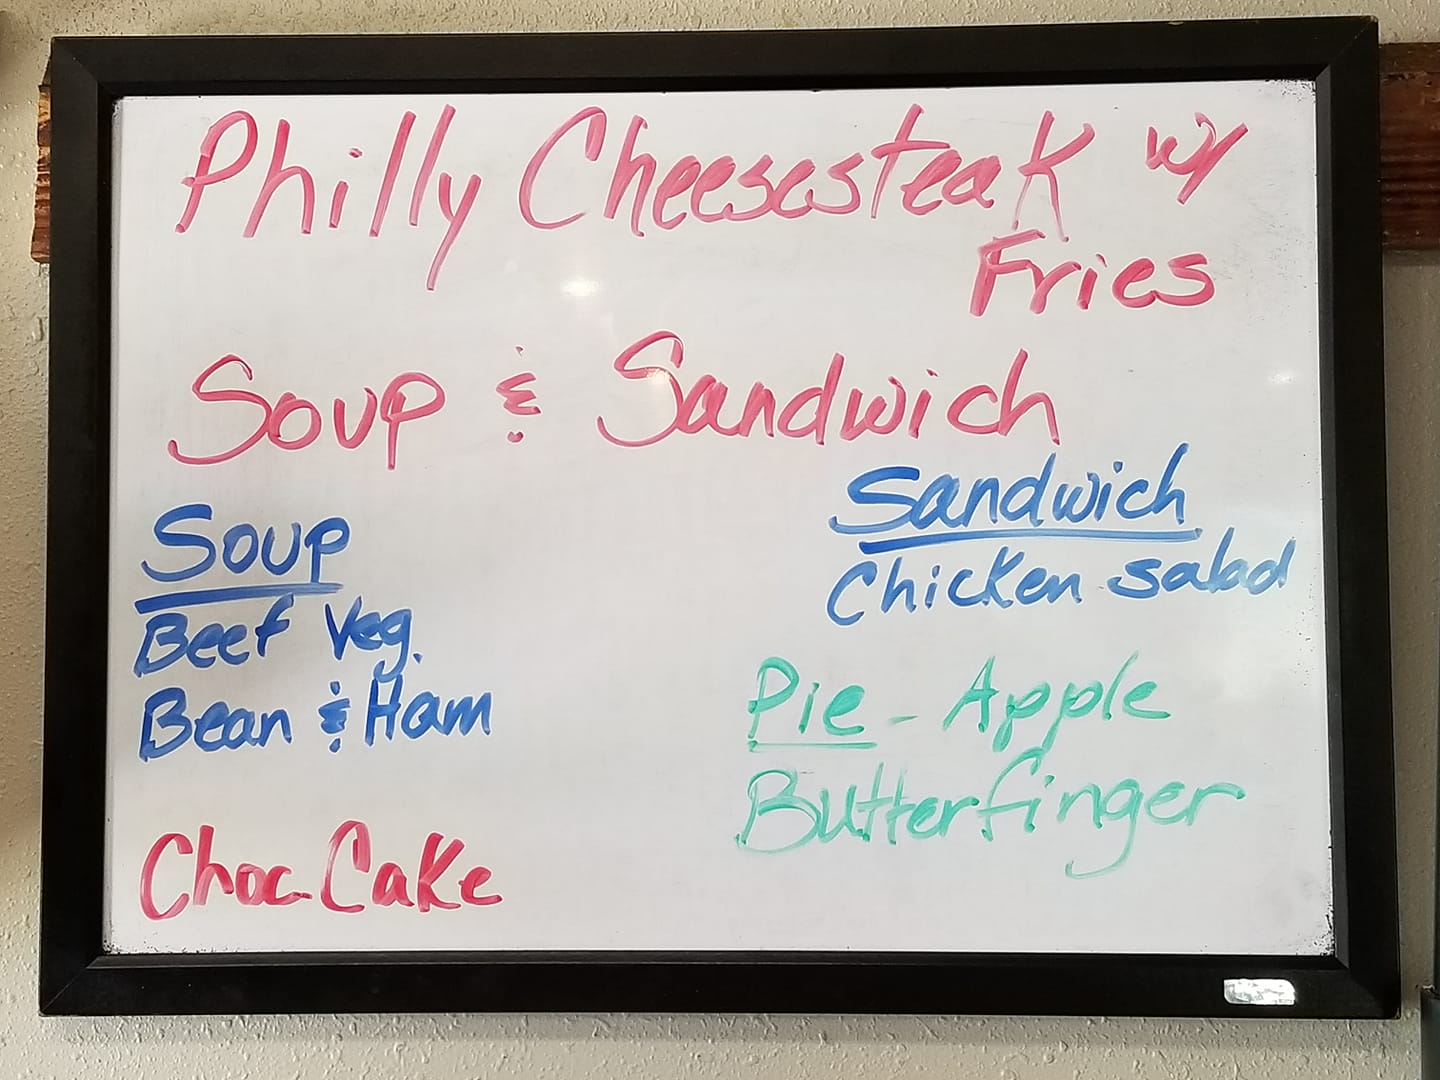 Philly Cheesesteak w/
Fries
Soup & Sandwich
Soup
Beef Veg.
Bean & Ham
Sandwich
Chicken salad
Pie - Apple
Butterfinger
Choc Cake